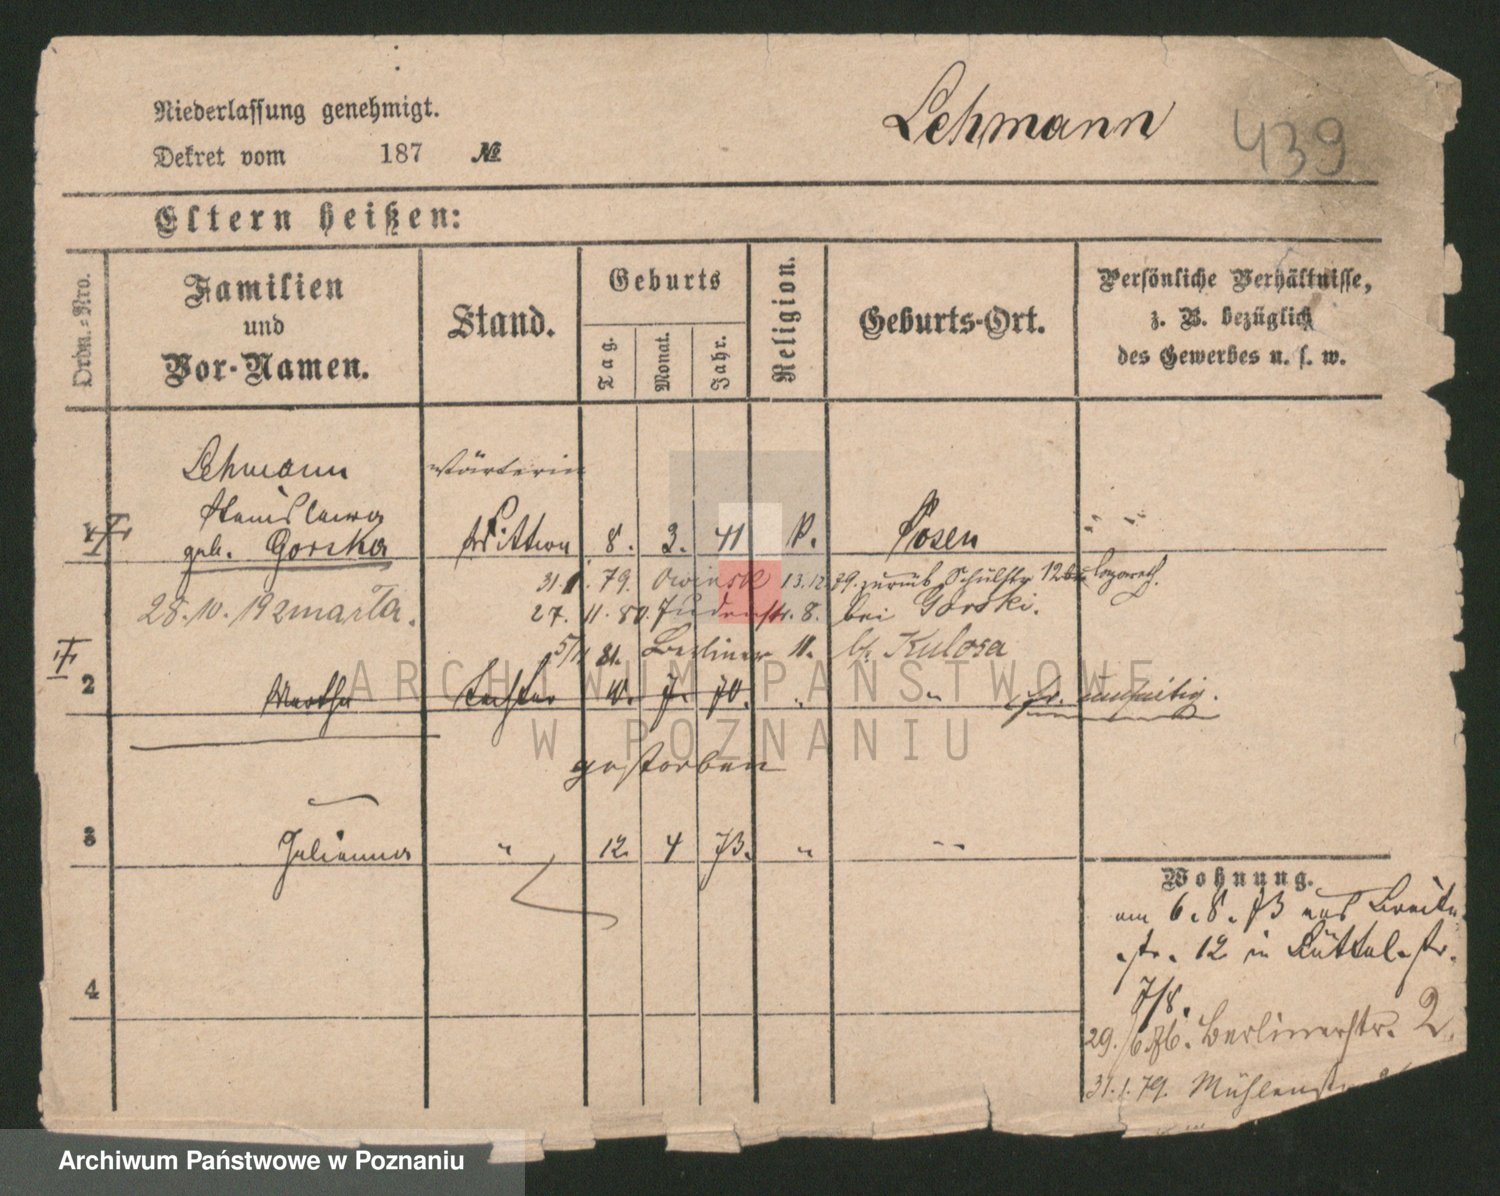 Niederlassung genehmigt.
Lehmann
439
Dekret vom 187 №
Eltern heißen:
Ordn.-Nro.
Familien
und
Vor-Namen.
Stand.
Geburts
Tag.
Monat.
Jahr.
Religion.
Geburts-Ort.
Persönliche Verhältnisse,
z. B. bezüglich
des Gewerbes u. s. w.
Lehmann Wärterin
Stanislawa
geb. Gorska Wittwe 8. 3. 41 K. Posen
31. 1. 79. Owinsk 13.12.79. zurück Schulstr. 12 Lazareth.
28.10.192 marta. 27. 11. 80. Judenstr. 8. bei Gorski.
5/1 81. Berliner 11. b/ Kulosa
2 Martha Tochter 10. 7. 70. " "
gestorben
3 Julianna " 12. 4 73. " "
4
Wohnung.
am 6. 8. 73 aus Breite-
str. 12 in Büttel-str.
7/8.
29./6.76. Berlinerstr. 2
31.1.79. Mühlenstr.
ARCHIWUM PAŃSTWOWE
W POZNANIU
Archiwum Państwowe w Poznaniu